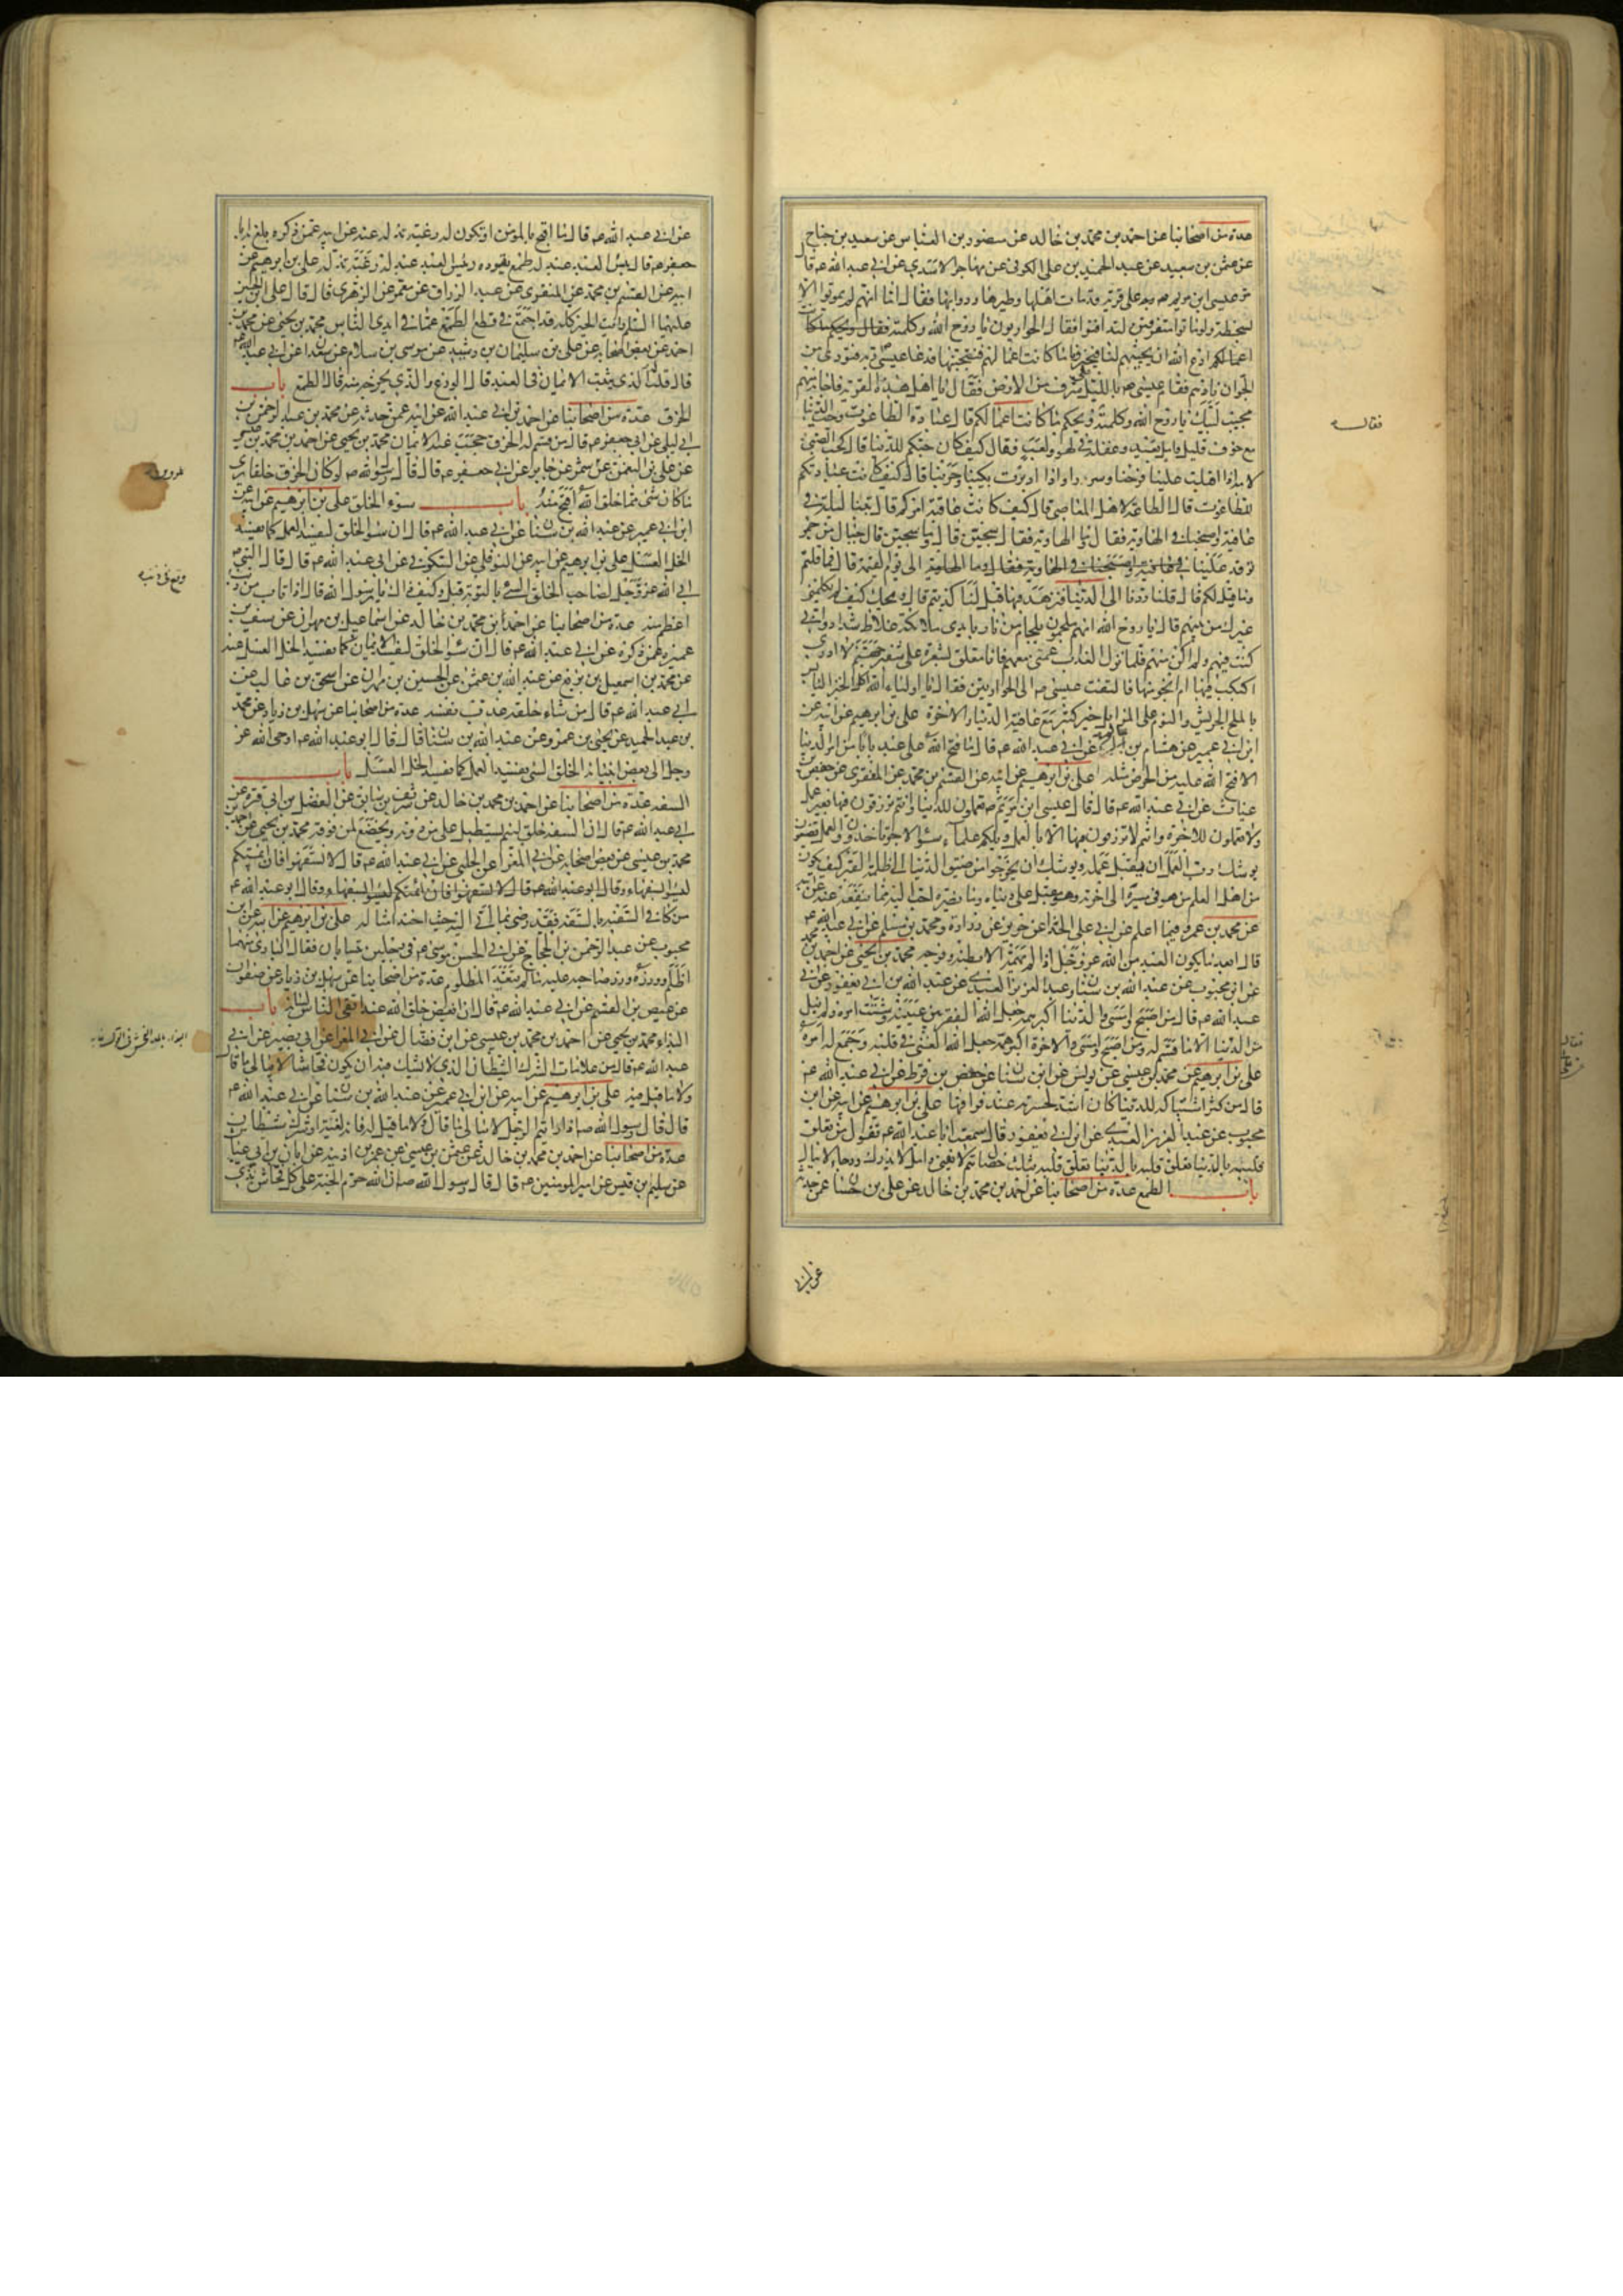 عدة من اصحابنا عن احمد بن محمد بن خالد عن منصور بن العباس عن سعيد بن جناح
عن عثمن بن سعيد عن عبد الحميد بن على الكوفى عن مهاجر الاسدى عن ابى عبد الله ع قال
مر عيسى ابن مريم ع على قرية قد مات اهلها وطيرها ودوابها فقال اما انهم لم يموتوا الا
بسخطة ولو ماتوا متفرقين لتدافنوا فقال الحواريون يا روح الله وكلمته
اعمالهم ادع الله ان يحييهم لنا فيخبرونا ما كانت اعمالهم فنجتنبها فدعا عيسى ربه فنودى من
الجو ان نادهم فقام عيسى ع بالليل على شرف من الارض فقال يا اهل هذه القرية فاجابه منهم
مجيب لبيك يا روح الله وكلمته فقال ويحكم ما كانت اعمالكم قال عبادة الطاغوت وحب الدنيا
مع خوف قليل وامل بعيد وغفلة فى لهو ولعب فقال كيف كان حبكم للدنيا قال كحب الصبى
لامه اذا اقبلت علينا فرحنا وسررنا واذا ادبرت بكينا وحزنا قال كيف كانت عبادتكم
للطاغوت قال الطاعة لاهل المعاصى قال كيف كانت عاقبة امركم قال بتنا ليلة فى
عافية واصبحنا فى الهاوية فقال وما الهاوية فقال سجين قال وما سجين قال جبال من جمر
توقد علينا الى يوم القيمة قال فما قلتم
وما قيل لكم قال قلنا ردنا الى الدنيا فنزهد فيها قيل لنا كذبتم قال ويحك كيف لم يكلمنى
غيرك من بينهم قال يا روح الله انهم ملجمون بلجام من نار بايدى ملائكة غلاظ شداد وانى
كنت فيهم ولم اكن منهم فلما نزل العذاب عمنى معهم فانا معلق بشعرة على شفير جهنم لا ادرى
اكبكب فيها ام انجو منها فالتفت عيسى ع الى الحواريين فقال يا اولياء الله اكل الخبز اليابس
بالملح الجريش والنوم على المزابل خير كثير مع عافية الدنيا والاخرة على بن ابرهيم عن ابيه عن
ابن ابى عمير عن هشام بن سالم عن ابى عبد الله ع قال ما فتح الله على عبد بابا من امر الدنيا
الا فتح الله عليه من الحرص مثله على بن ابرهيم عن ابيه عن القسم بن محمد عن المنقرى عن حفص بن
غياث عن ابى عبد الله ع قال قال عيسى ابن مريم ع تعملون للدنيا وانتم ترزقون فيها بغير عمل
ولا تعملون للاخرة وانتم لا ترزقون فيها الا بالعمل ويلكم علماء سوء الاجر تاخذون والعمل تضيعون
يوشك رب العمل ان يقبل عمله ويوشك ان يخرجوا من ضيق الدنيا الى ظلمة القبر كيف يكون
من اهل العلم من هو فى مسيره الى اخرته وهو مقبل على دنياه وما يضره احب اليه مما ينفعه عنه عن ابيه
عن محمد بن عمرو فيما اعلم عن ابى على الحذاء عن حريز عن زرارة ومحمد بن مسلم عن ابى عبد الله ع
قال ابعد ما يكون العبد من الله عز وجل اذا لم يهمه الا بطنه وفرجه محمد بن يحيى عن احمد بن محمد
عن ابن محبوب عن عبد الله بن سنان وعبد العزيز العبدى عن عبد الله بن ابى يعفور عن ابى
عبد الله ع قال من اصبح وامسى والدنيا اكبر همه جعل الله الفقر بين عينيه وشتت امره ولم ينل
من الدنيا الا ما قسم له ومن اصبح وامسى والاخرة اكبر همه جعل الله الغنى فى قلبه وجمع له امره
على بن ابرهيم عن محمد بن عيسى عن يونس عن ابن سنان عن حفص بن قرط عن ابى عبد الله ع
قال من كثر اشتباكه للدنيا كان اشد لحسرته عند فراقها على بن ابرهيم عن ابيه عن ابن
محبوب عن عبد العزيز العبدى عن ابن ابى يعفور قال سمعت ابا عبد الله ع يقول من تعلق
قلبه بالدنيا تعلق قلبه بثلث خصال هم لا يفنى وامل لا يدرك ورجاء لا ينال
باب الطمع عدة من اصحابنا عن احمد بن محمد بن خالد عن على بن حسان عمن حدثه
فقال
عن ابى عبد الله ع قال ما اقبح بالمؤمن ان تكون له رغبة تذله عنه عن ابيه عمن ذكره بلغ به ابا
جعفر ع قال بئس العبد عبد له طمع يقوده وبئس العبد عبد له رغبة تذله على بن ابرهيم عن
ابيه عن القسم بن محمد عن المنقرى عن عبد الرزاق عن معمر عن الزهرى قال قال على بن الحسين
عليهما السلم رايت الخير كله قد اجتمع فى قطع الطمع عما فى ايدى الناس محمد بن يحيى عن محمد بن
احمد عن بعض اصحابه عن على بن سليمان بن رشيد عن موسى بن سلام عن سعدان عن ابى عبد الله ع
قال قلت الذى يثبت الايمان فى العبد قال الورع والذى يخرجه منه قال الطمع باب
الخرق عدة من اصحابنا عن احمد بن ابى عبد الله عن ابيه عمن حدثه عن محمد بن عبد الرحمن بن
ابى ليلى عن ابى جعفر ع قال من قسم له الخرق حجب عنه الايمان محمد بن يحيى عن احمد بن محمد بن عيسى
عن على بن النعمن عن عمرو بن شمر عن جابر عن ابى جعفر ع قال قال رسول الله ص لو كان الخرق خلقا يرى
ما كان شئ مما خلق الله اقبح منه باب سوء الخلق على بن ابرهيم عن ابيه عن
ابن ابى عمير عن عبد الله بن سنان عن ابى عبد الله ع قال ان سوء الخلق ليفسد العمل كما يفسد
الخل العسل على بن ابرهيم عن ابيه عن النوفلى عن السكونى عن ابى عبد الله ع قال قال النبى ص
ابى الله عز وجل لصاحب الخلق السئ بالتوبة قيل وكيف ذاك يا رسول الله قال اذا تاب من ذنب وقع فى ذنب
اعظم منه عدة من اصحابنا عن احمد بن محمد بن خالد عن اسماعيل بن مهران عن سيف بن
عميرة عمن ذكره عن ابى عبد الله ع قال ان سوء الخلق ليفسد الايمان كما يفسد الخل العسل عنه
عن محمد بن اسمعيل بن بزيع عن عبد الله بن عثمن عن الحسين بن مهران عن اسحق بن غالب عن
ابى عبد الله ع قال من ساء خلقه عذب نفسه عدة من اصحابنا عن سهل بن زياد عن محمد
بن عبد الحميد عن يحيى بن عمرو عن عبد الله بن سنان قال قال ابو عبد الله ع اوحى الله عز
وجل الى بعض انبيائه الخلق السئ يفسد العمل كما يفسد الخل العسل باب
السفه عدة من اصحابنا عن احمد بن محمد بن خالد عن شريف بن سابق عن الفضل بن ابى قرة عن
ابى عبد الله ع قال ان السفه خلق لئيم يستطيل على من دونه ويخضع لمن فوقه محمد بن يحيى عن احمد بن
محمد بن عيسى عن بعض اصحابه عن ابى المغرا عن الحلبى عن ابى عبد الله ع قال لا تسفهوا فان ائمتكم
ليسوا بسفهاء وقال ابو عبد الله ع
من كافى السفيه بالسفه فقد رضى بما اتى اليه حيث احتذى مثاله على بن ابرهيم عن ابيه عن ابن
محبوب عن عبد الرحمن بن الحجاج عن ابى الحسن موسى ع فى رجلين يتسابان فقال البادى منهما
اظلم ووزره ووزر صاحبه عليه ما لم يتعد المظلوم عدة من اصحابنا عن سهل بن زياد عن صفوان
عن عيص بن القسم عن ابى عبد الله ع قال ان ابغض خلق الله عبد اتقى الناس لسانه باب
البذاء محمد بن يحيى عن احمد بن محمد بن عيسى عن ابن فضال عن ابى المغرا عن ابى بصير عن ابى
عبد الله ع قال من علامات شرك الشيطان الذى لا يشك فيه ان يكون فحاشا لا يبالى ما قال
ولا ما قيل فيه على بن ابرهيم عن ابيه عن ابن ابى عمير عن عبد الله بن سنان عن ابى عبد الله ع
قال قال رسول الله ص اذا رايتم الرجل لا يبالى ما قال ولا ما قيل له فانه لغية او شرك شيطان
عدة من اصحابنا عن احمد بن محمد بن خالد عن عثمن بن عيسى عن عمر بن اذينة عن ابان بن ابى عياش
عن سليم بن قيس عن امير المومنين ع قال قال رسول الله ص ان الله حرم الجنة على كل فحاش بذى
وقع فى ذنب